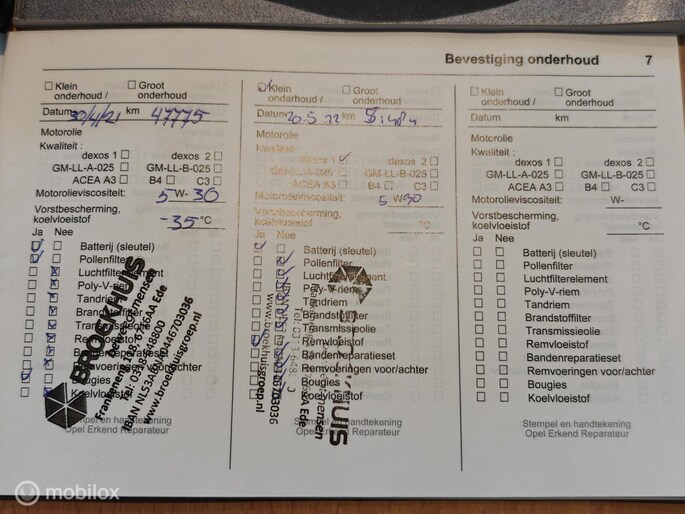 Bevestiging onderhoud 7
Klein onderhoud / Groot onderhoud
Datum 30/4/21 km 47775
Motorolie
Kwaliteit :
dexos 1 dexos 2
GM-LL-A-025 GM-LL-B-025
ACEA A3 B4 C3
Motorolieviscositeit: 5 W- 30
Vorstbescherming,
koelvloeistof -35 °C
Ja Nee
Batterij (sleutel)
Pollenfilter
Luchtfilterelement
Poly-V-riem
Tandriem
Brandstoffilter
Transmissieolie
Remvloeistof
Bandenreparatieset
Remvoeringen voor/achter
Bougies
Koelvloeistof
BROEKHUIS
Frankeneng
Tel:
www.broekhuisgroep.nl
Stempel en handtekening
Opel Erkend Reparateur
Klein onderhoud / Groot onderhoud
Datum 20.5 22 km
Motorolie
Kwaliteit :
dexos 1 dexos 2
GM-LL-A-025 GM-LL-B-025
ACEA A3 B4 C3
Motorolieviscositeit: 5 W-30
Vorstbescherming,
koelvloeistof °C
Ja Nee
Batterij (sleutel)
Pollenfilter
Luchtfilterelement
Poly-V-riem
Tandriem
Brandstoffilter
Transmissieolie
Remvloeistof
Bandenreparatieset
Remvoeringen voor/achter
Bougies
Koelvloeistof
Stempel en handtekening
Opel Erkend Reparateur
Klein onderhoud / Groot onderhoud
Datum km
Motorolie
Kwaliteit :
dexos 1 dexos 2
GM-LL-A-025 GM-LL-B-025
ACEA A3 B4 C3
Motorolieviscositeit: W-
Vorstbescherming,
koelvloeistof °C
Ja Nee
Batterij (sleutel)
Pollenfilter
Luchtfilterelement
Poly-V-riem
Tandriem
Brandstoffilter
Transmissieolie
Remvloeistof
Bandenreparatieset
Remvoeringen voor/achter
Bougies
Koelvloeistof
Stempel en handtekening
Opel Erkend Reparateur
mobilox